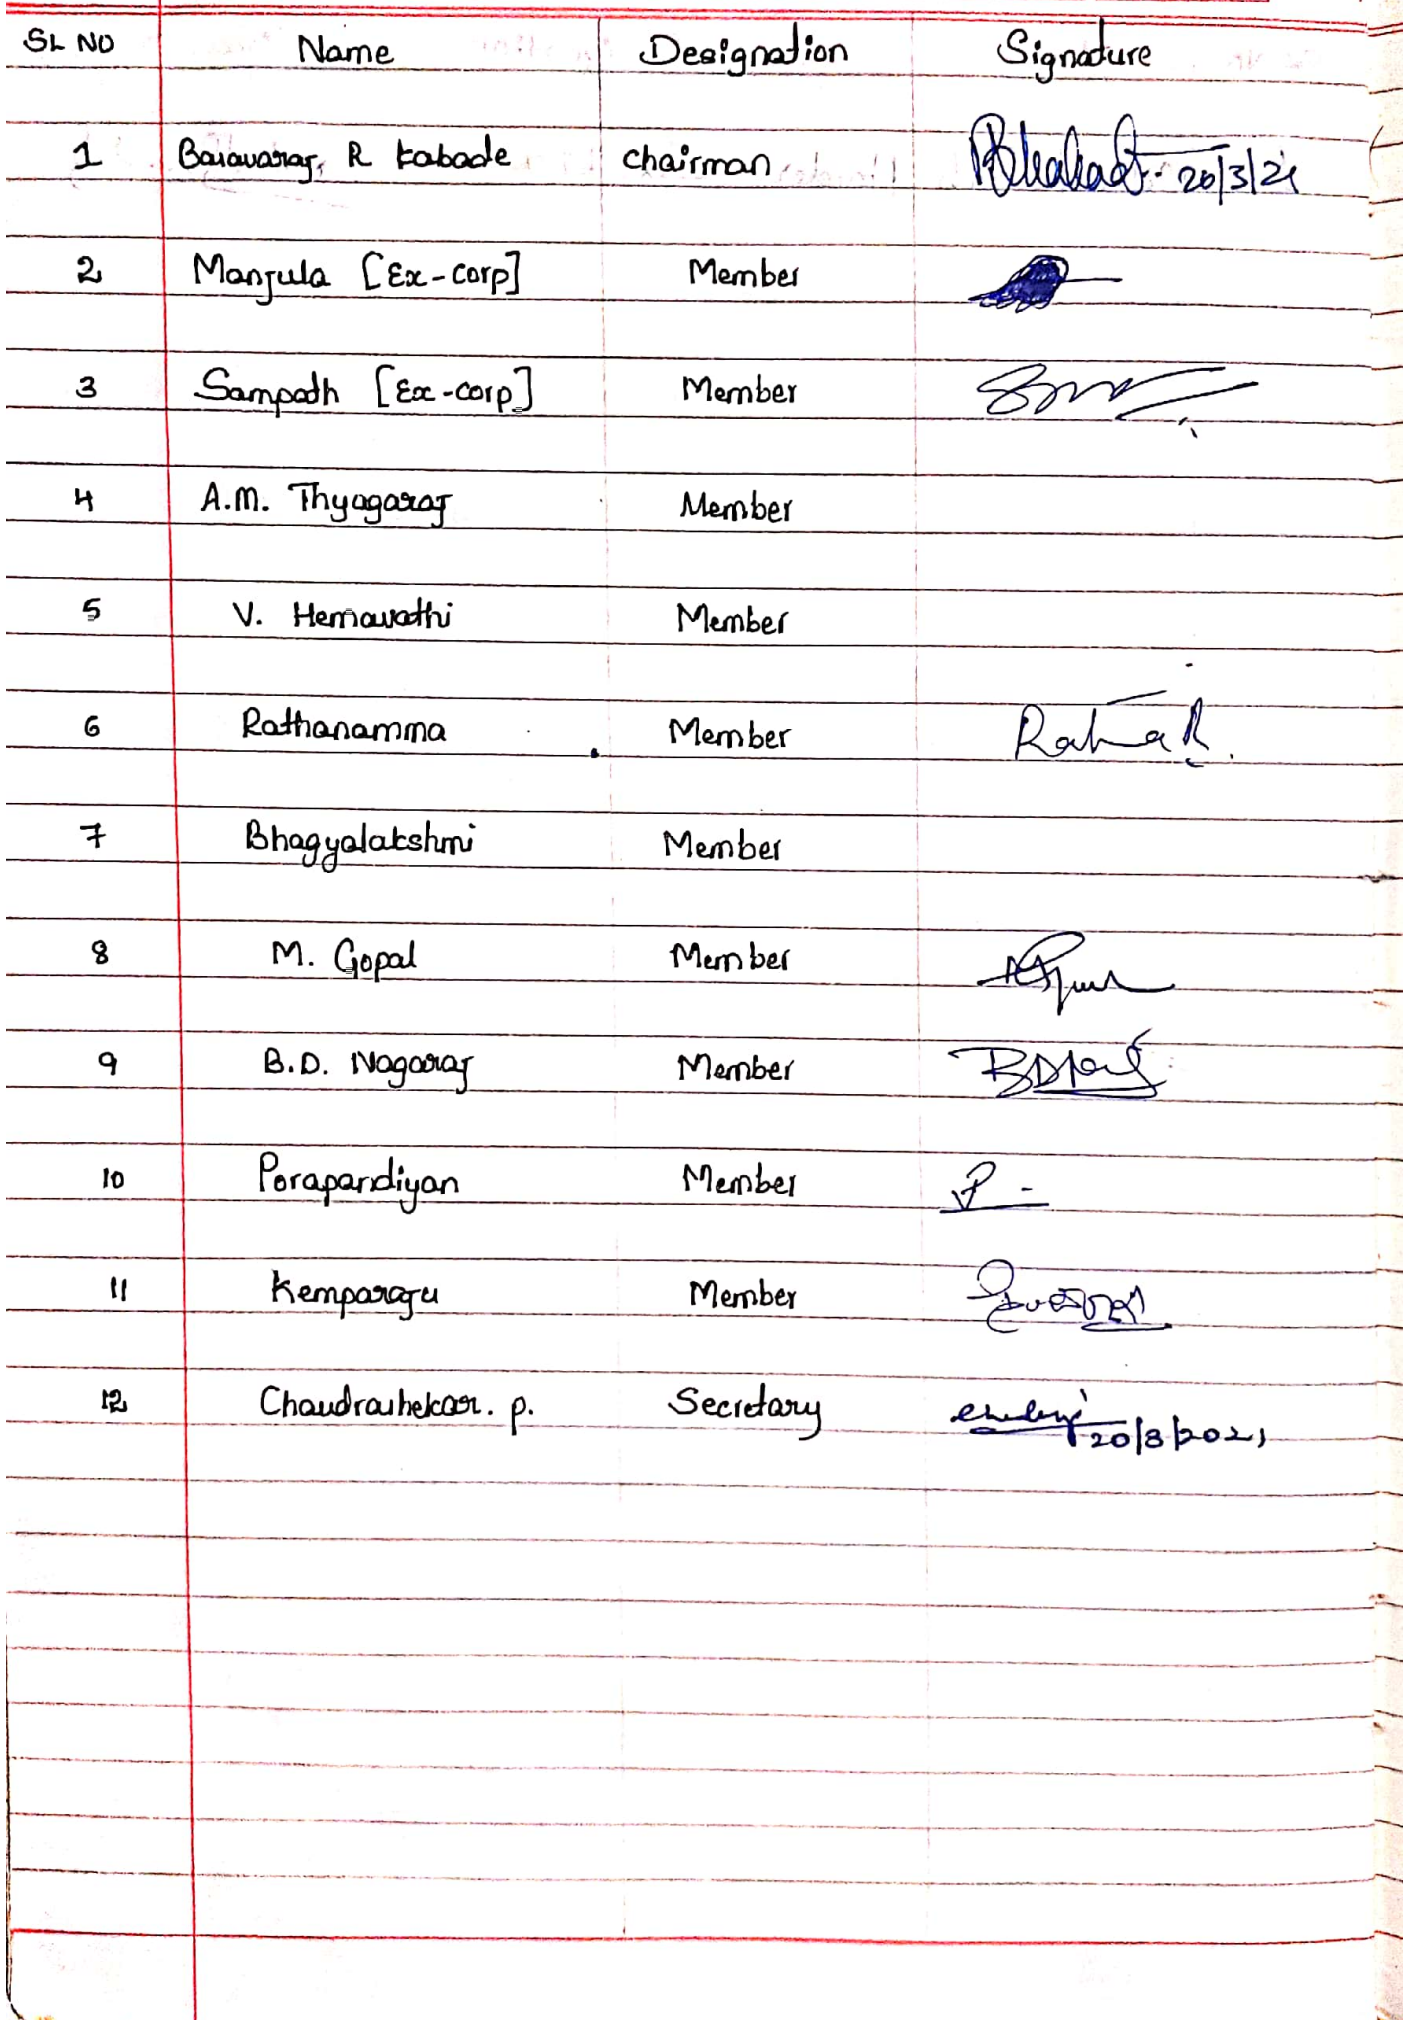 SL NO Name Designation Signature
1 Basavaraj. R Kabade Chairman 20/3/21
2 Manjula [Ex-corp] Member
3 Sampath [Ex-corp] Member
4 A.M. Thyagaraj Member
5 V. Hemavathi Member
6 Rathanamma Member Ratna R.
7 Bhagyalakshmi Member
8 M. Gopal Member
9 B.D. Nagaraj Member
10 Porapandiyan Member
11 Kemparaju Member
12 Chandrashekar. p. Secretary 20/3/2021